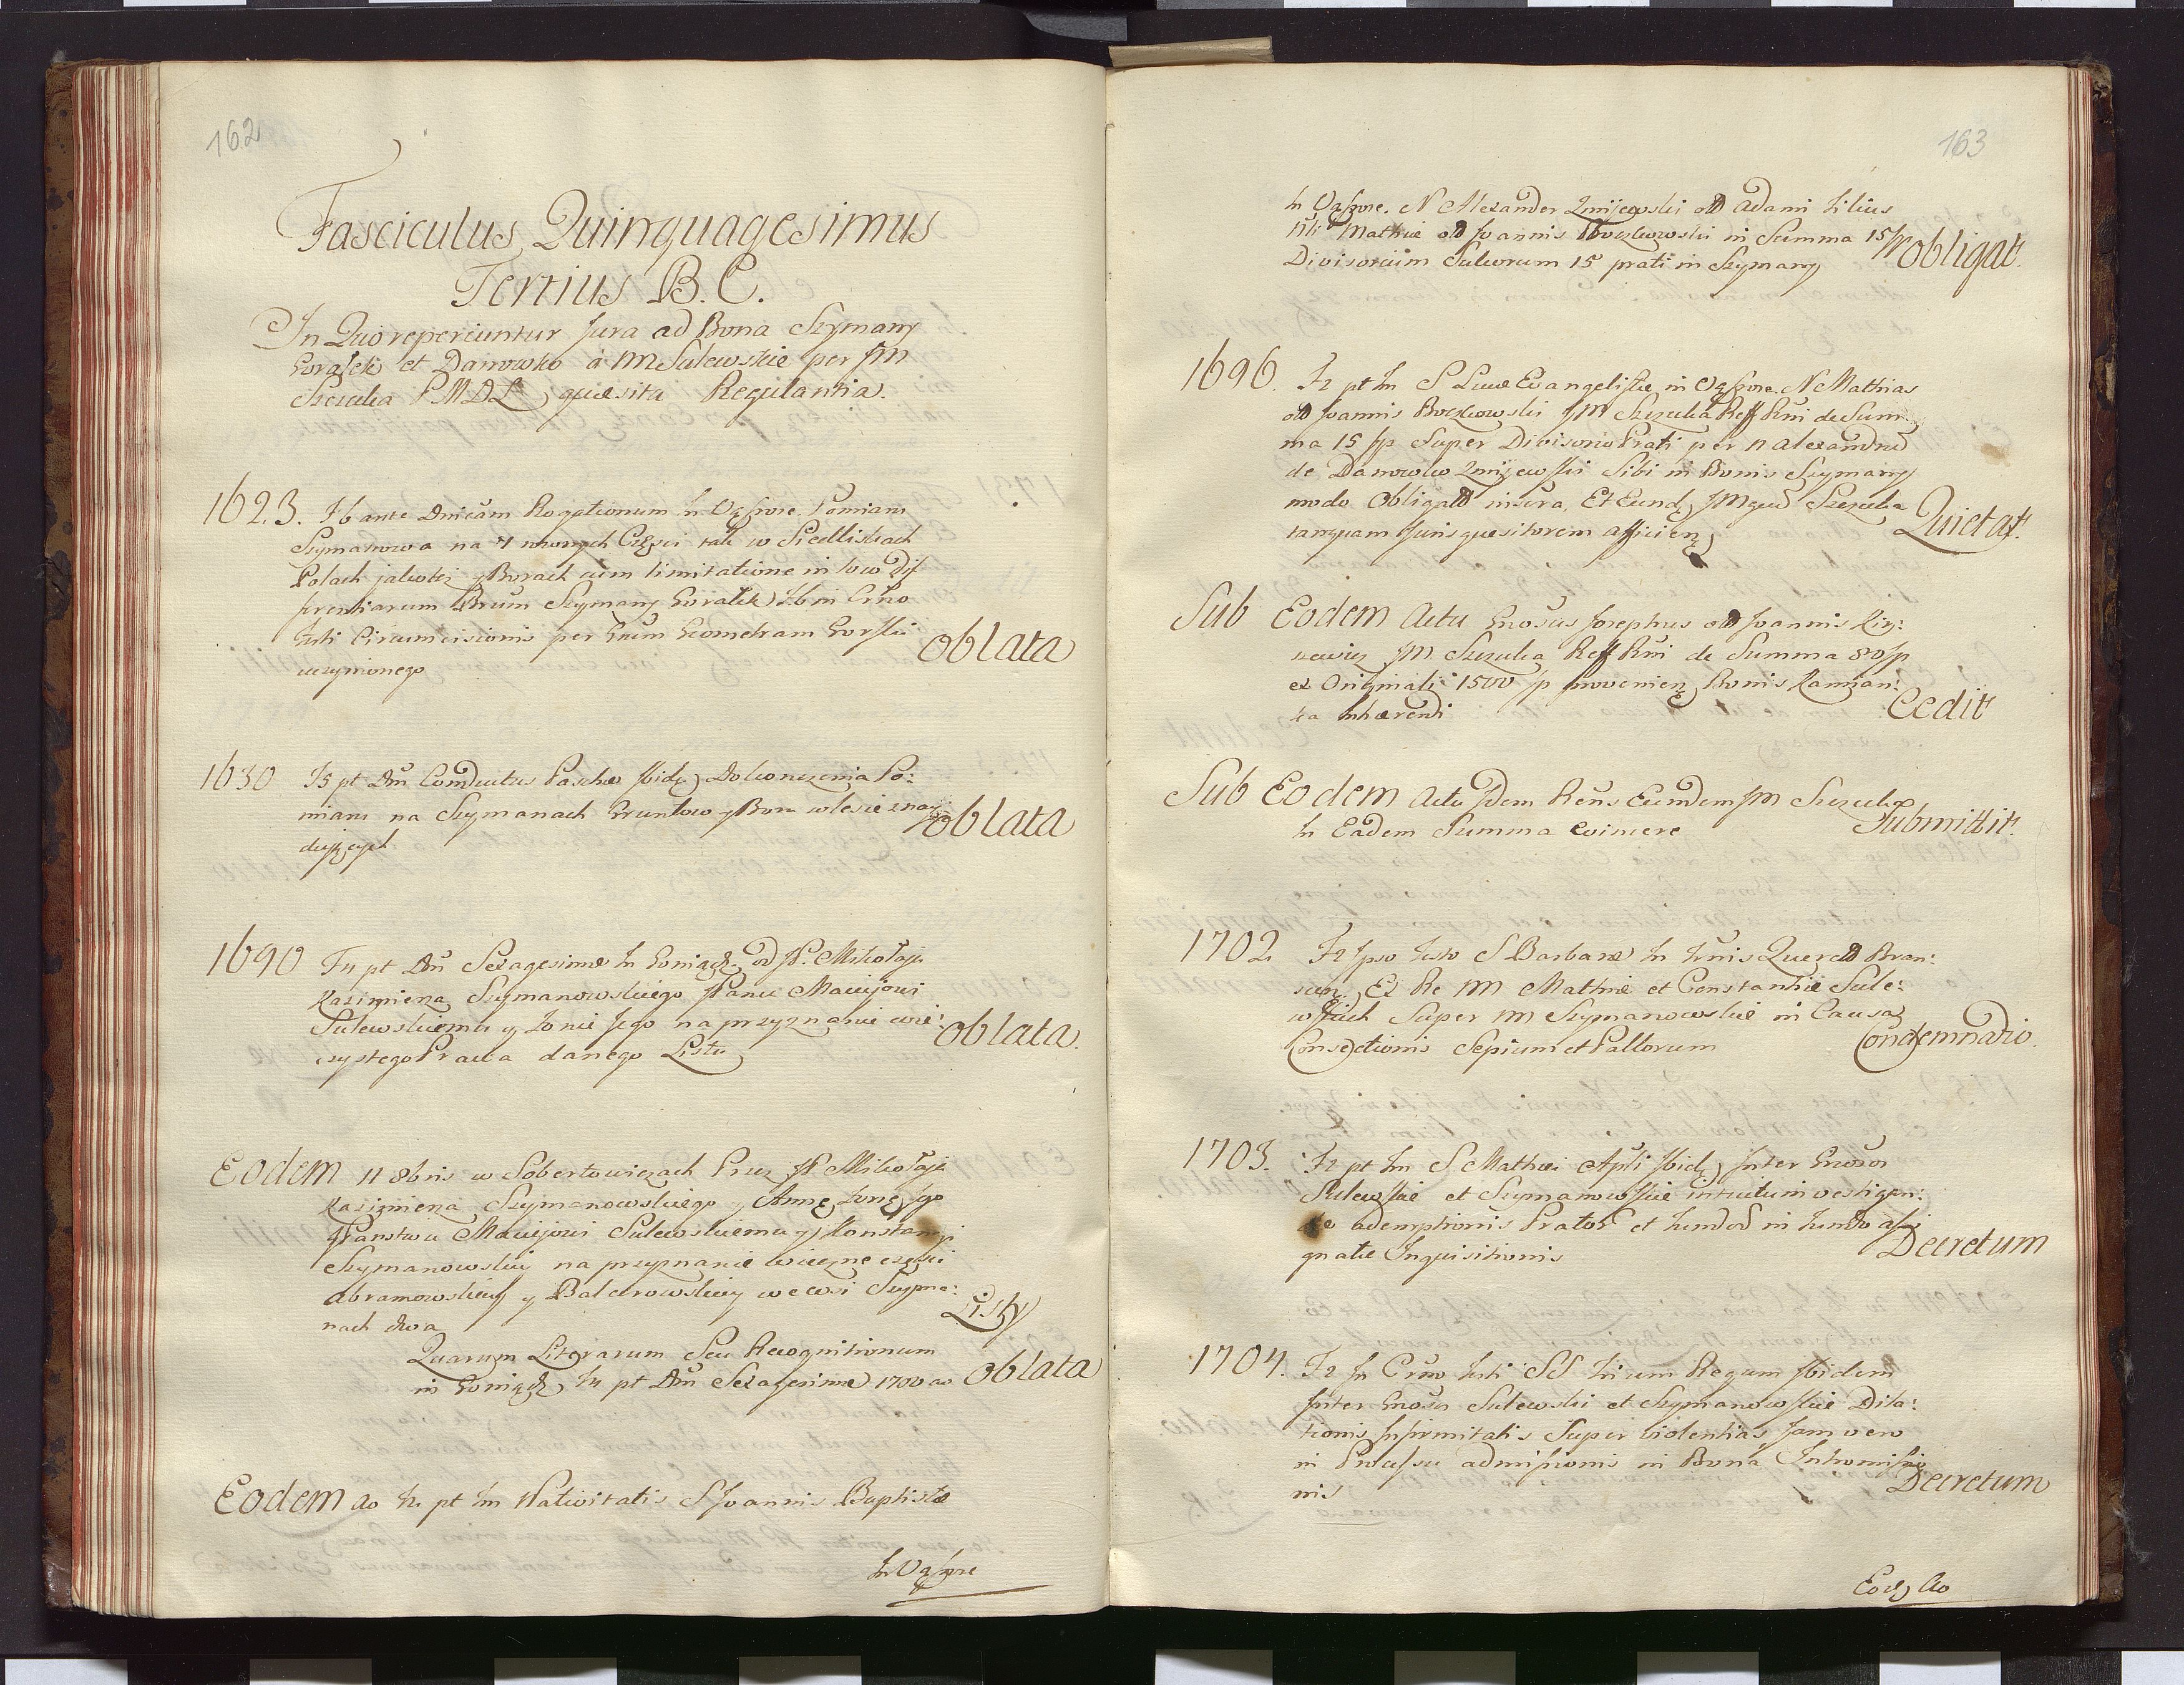 162
Fasciculus Quinquagesimus
Tertius B. C.
In Quo reperiuntur Jura ad Bona Szymany
Gorałek et Danowko à MM Sulewskie per JM
Szczuka quæsita Regulantia.
1623. F6 ante Dnicam Rogationum In Wąssosze. Pomiaru
Szymanowa na 4 rownych Częsci tak w Siedliskach
Polach jakotez y Borach cum limitatione in loco dif
ferentiarum Bnrum Szymany Gorałek F6 in Crno
festi Circumcisionis per Gnum Geometram Gorski
uczynionego
Oblata
1630 F5 pt Dm Conductus Paschæ Ibidę Dokonczenia Po:
miaru na Szymanach Gruntow y Boru w lesie znay:
duiących
Oblata
1690 F4 pt Dm Sexagesimæ In Goniądz od JP. Mikołaja
Kazimierza Szymanowskiego JPanu Maciejowi
Sulewskiemu y Zonie Jego na przyznanie wie:
czystego Prawa danego Listu
Oblata.
Eodem 11 8bris w Sobertowiczach Przez JP Mikołaja
Kazimierza Szymanowskiego y Annę Zonę Jgo
JPanstwu Maciejowi Sulewskiemu y Konstancyi
Szymanowskiey na przyznanie wieczne części
Abramowskiey y Balcerowskiey we wsi Szyma:
nach dwa
Listy
Quarum Literarum Seu Recognitionum
in Goniądz F4 pt Dm Sexagesimæ 1700 ao Oblata
Eodem ao F2 pt fm Nativitatis S Joannis Baptistæ
In Wąssosze
163
In Wąssosze. N Alexander Zmijewski olim Adami Filius
Nbli Mathiæ olim Joannis Boczkowski in Summa 15 fp
Divisorium Sulcorum 15 prati in Szymany
obligat.
1696. F2 pt fm S Lucæ Evangelistæ in Wąssosze. N Mathias
olim Joannis Boczkowski JM Szczuka Reff Rni de Sum
ma 15 fp Super Divisorio Prati per N Alexandrum
de Danowko Zmijewski Sibi in Bonis Szymany
modo Obligato inscra, Et Eundę JMgcum Szczuka
tanquam Juris quæsitorem afficienę
Quietat.
Sub Eodem Actu Gnosus Josephus olim Joannis
JM Szczuka Reff Rni de Summa 80 fp
ex Originali 1500 fp provenienę Bonis Kamian:
ka Inhærenti
Cedit
Sub Eodem Actu Idem Rens Eumdem JM Szczuka
In Eadem Summa Evincere
Submittit.
1702. F2 Ipso festo S Barbaræ In Trnis Querel Bran:
scen, Ex Re MM Mathiæ et Constantiæ Sule:
wskich Super MM Szymanowskie in Causa
Consectionis Sepium et Pallorum
Condemnatio.
1703. F2 pt fm S Mathæi Apli Ibidę Inter Gnosos
Sulewskie et Szymanowskie intuitu investigan:
dæ ademptionis Prator et fundor in fundo assi
gnatæ Inquisitionis
Decretum
1704. F2 In Crno festi SS Trium Regum Ibidem
Inter Gnosos Sulewski et Szymanowskie Dila:
tionis Infirmitatis Super violentias Jam vero
in Processu admissionis in Bona Intromissio
nis
Decretum
Eodę Ao